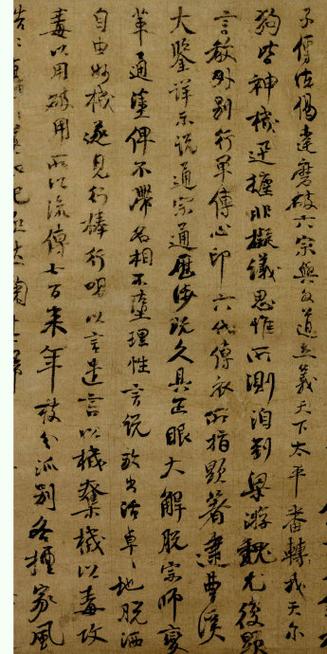 子傳法偈達磨破六宗與外道立義天下太平番轉我天尔
狗皆神機迅捷非擬議思惟所測洎到梁游魏尤復顯
言教外別行單傳心印六代傳衣所指顯著逮曹溪
大鑒詳示說通宗通歷涉既久具正眼大解脫宗師變
革通塗俾不滯名相不墮理性言說放出活卓〻地脫洒
自由妙機遂見行棒行喝以言遣言以機奪機以毒攻
毒以用破用所以流傳七百來年枝分派別各擅家風